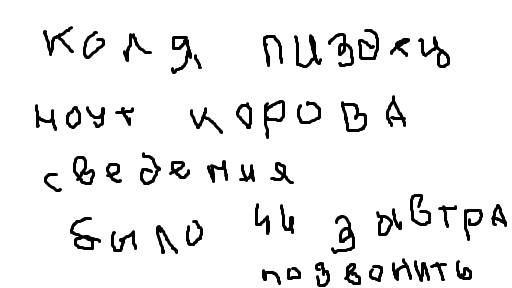 коля, пиздец
ноут корова
сведения
было 44 завтра
позвонить